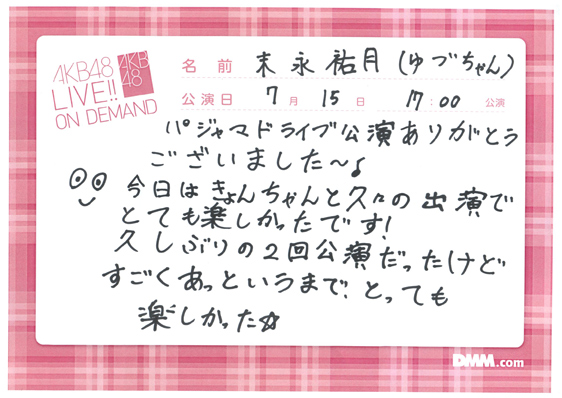 AKB48
LIVE!!
ON DEMAND
AKB
48
名前 末永祐月(ゆづちゃん)
公演日 7月 15日 17:00 公演
パジャマドライブ公演ありがとう
ございました〜♪
今日はきょんちゃんと久々の出演で
とても楽しかったです!
久しぶりの2回公演だったけど
すごくあっというまで、とっても
楽しかった☆
DMM.com